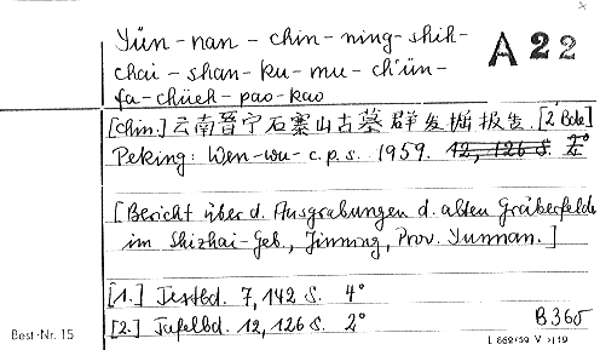 Yün-nan-chin-ning-shih-
chai-shan-ku-mu-ch'ün-
fa-chüeh-pao-kao
A 22
[Chin.] 云南晋宁石寨山古墓群发掘报告. [2 Bde]
Peking: Wen-wu-c.p.s. 1959. 12, 126 S. 2°
[Bericht über d. Ausgrabungen d. alten Gräberfelde
im Shizhai-Geb., Jinning, Prov. Yunnan.]
[1.] Textbd. 7, 142 S. 4°
[2.] Tafelbd. 12, 126 S. 2°
B 365
Best.-Nr. 15